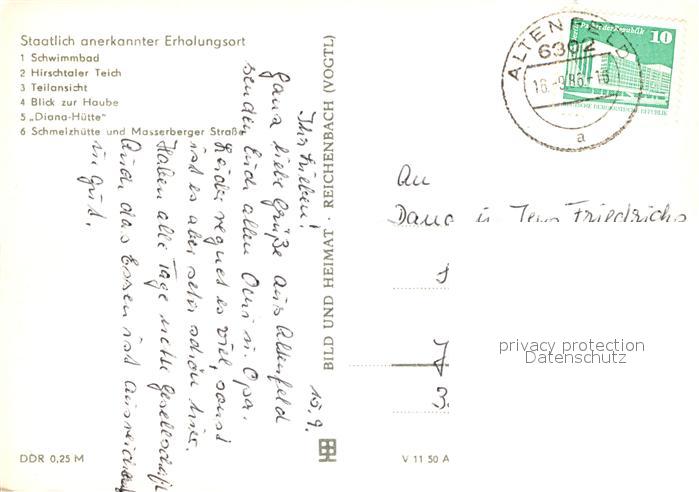 Staatlich anerkannter Erholungsort
1 Schwimmbad
2 Hirschtaler Teich
3 Teilansicht
4 Blick zur Haube
5 „Diana-Hütte“
6 Schmelzhütte und Masserberger Straße
15.9.
Ihr Lieben!
Ganz liebe Grüße aus Altenfeld
senden Euch allen Omi u. Opa.
Leider regnet es viel, sonst
ist es aber sehr schön hier.
Haben alle Tage nette Gesellschaft
Auch das Essen ist ausreichend
u. gut.
DDR 0,25 M
BILD UND HEIMAT · REICHENBACH (VOGTL)
V 11 50 A
ALTENFELD
6302
16.-9.86.-15
a
Palast der Republik
10
DEUTSCHE DEMOKRATISCHE REPUBLIK
An
Dana u. Jens Friedrichs
privacy protection
Datenschutz